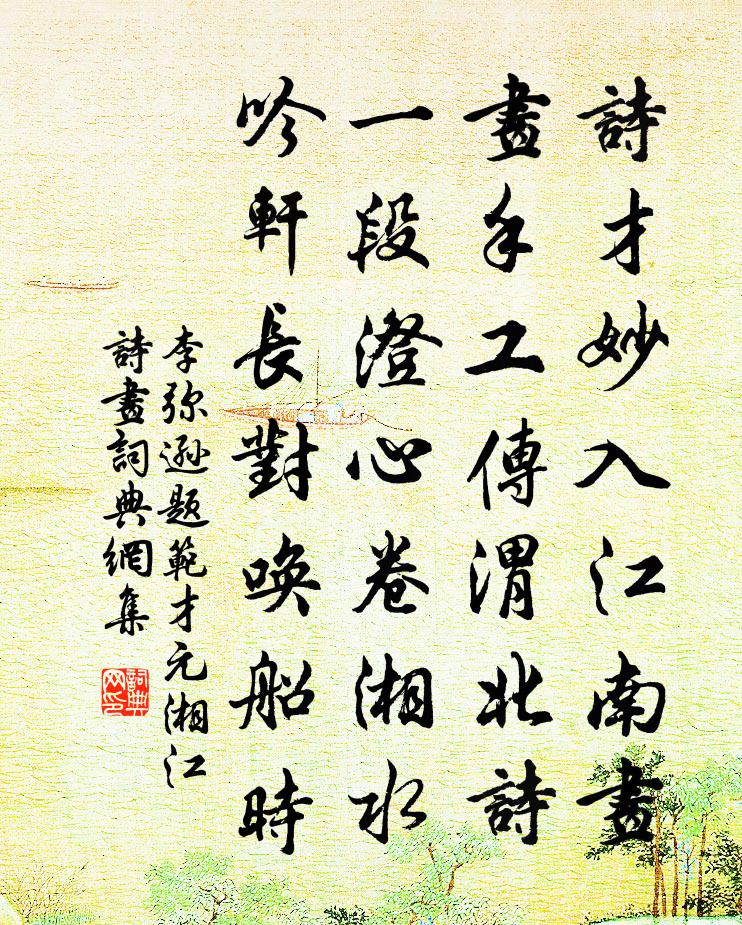 詩才妙入江南畫
畫手工傳渭北詩
一段澄心卷湘水
吟軒長對喚船時
李弥遜题範才元湘江
詩畫詞典網集
詞典
网印